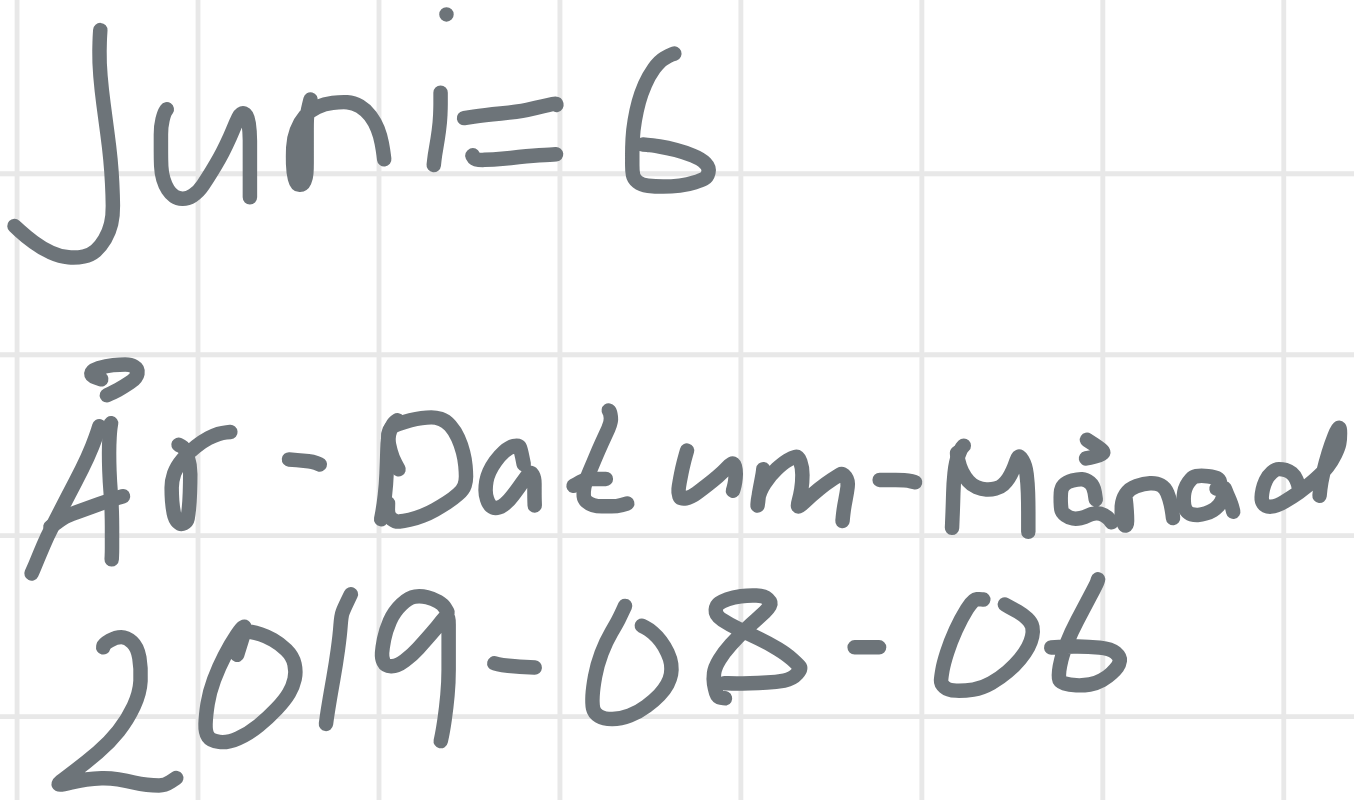 Juni= 6
År-Datum-Månad
2019-08-06